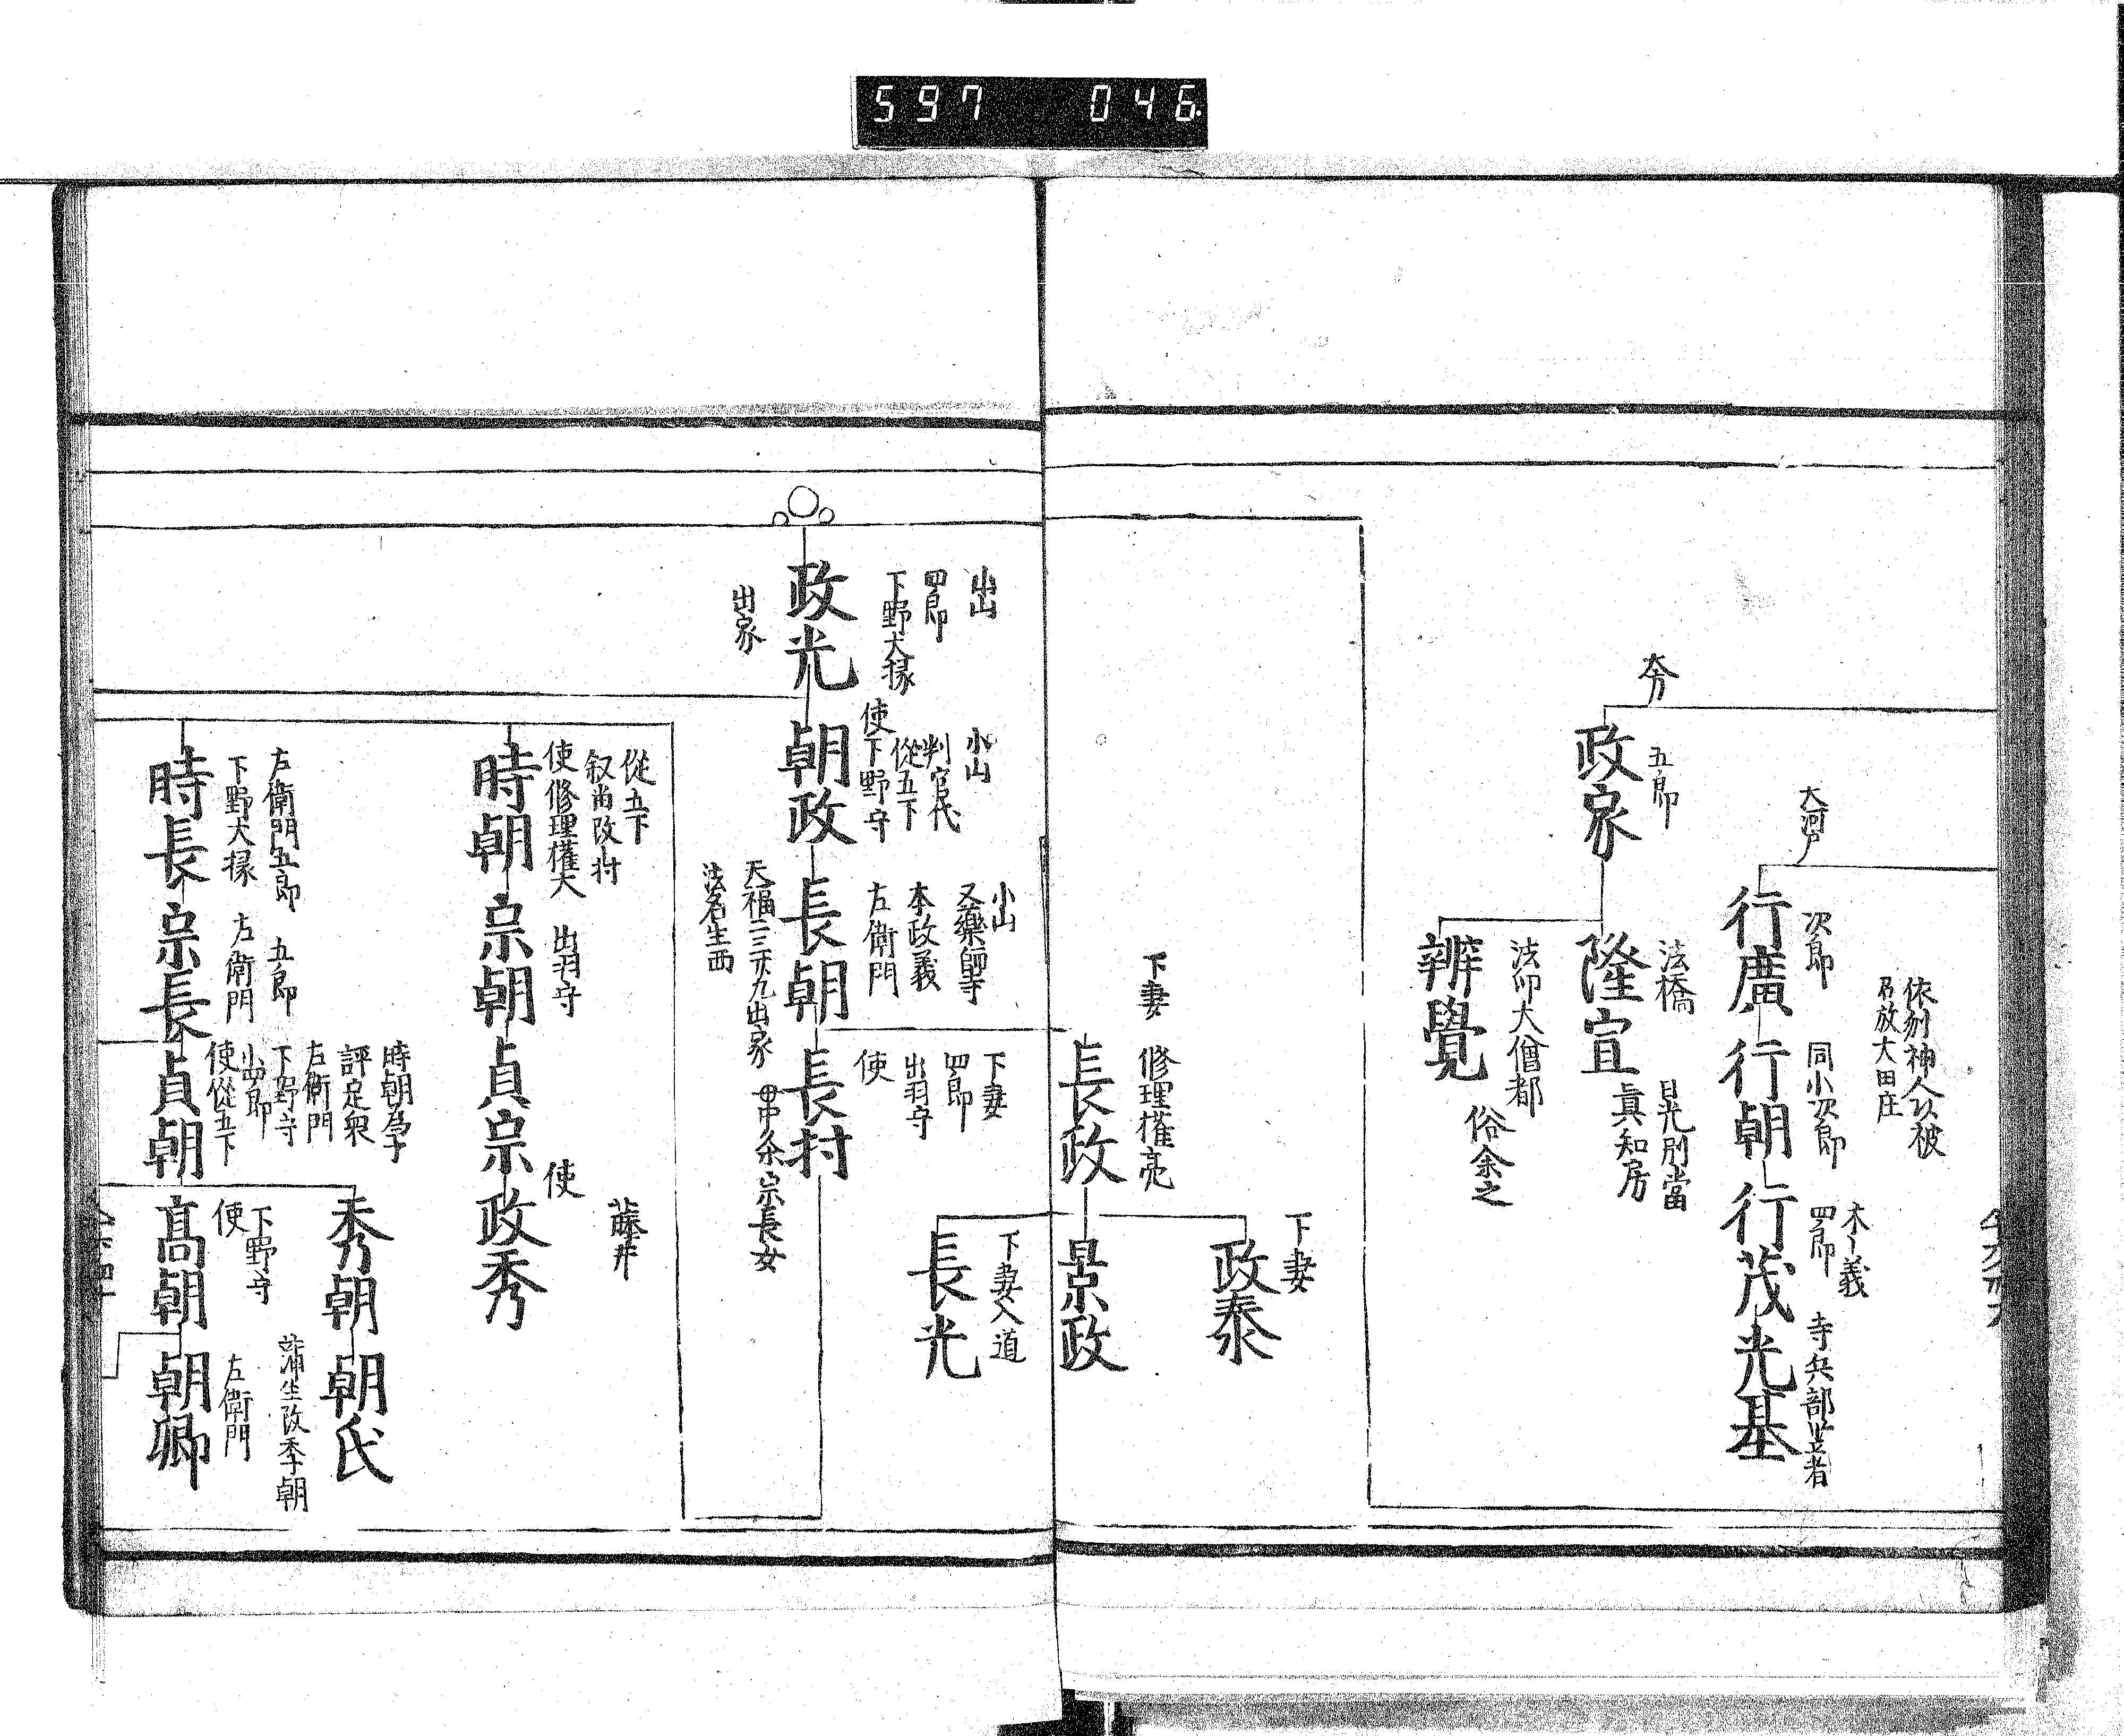 597 046
依刻神人以被
放大田庄
大河戸
次郎
行廣
同小次郎
行朝
木工義
四郎
行茂
光基
寺兵部丞者
五郎
政家
法橋
隆宣
日光別當
眞知房
法印大僧都
辨覺
俗余之
下妻
政泰
下妻
修理權亮
長政
景政
下妻入道
長光
小山
四郎
下野大掾
政光
出家
小山
判官代
從五下
使下野守
朝政
小山
又藥師寺
本政義
左衛門
長朝
下妻
四郎
出羽守
使
長村
法名生西
中条宗長女
從五下
叙尚改村
使修理權大
時朝
出羽守
宗朝
貞宗
藤井
使
政秀
左衛門五郎
下野大掾
時長
五郎
左衛門
宗長
時朝爲子
評定衆
左衛門
下野守
小四郎
使從五下
貞朝
秀朝
朝氏
蒲生改季朝
下野守
使
髙朝
左衛門
朝郷